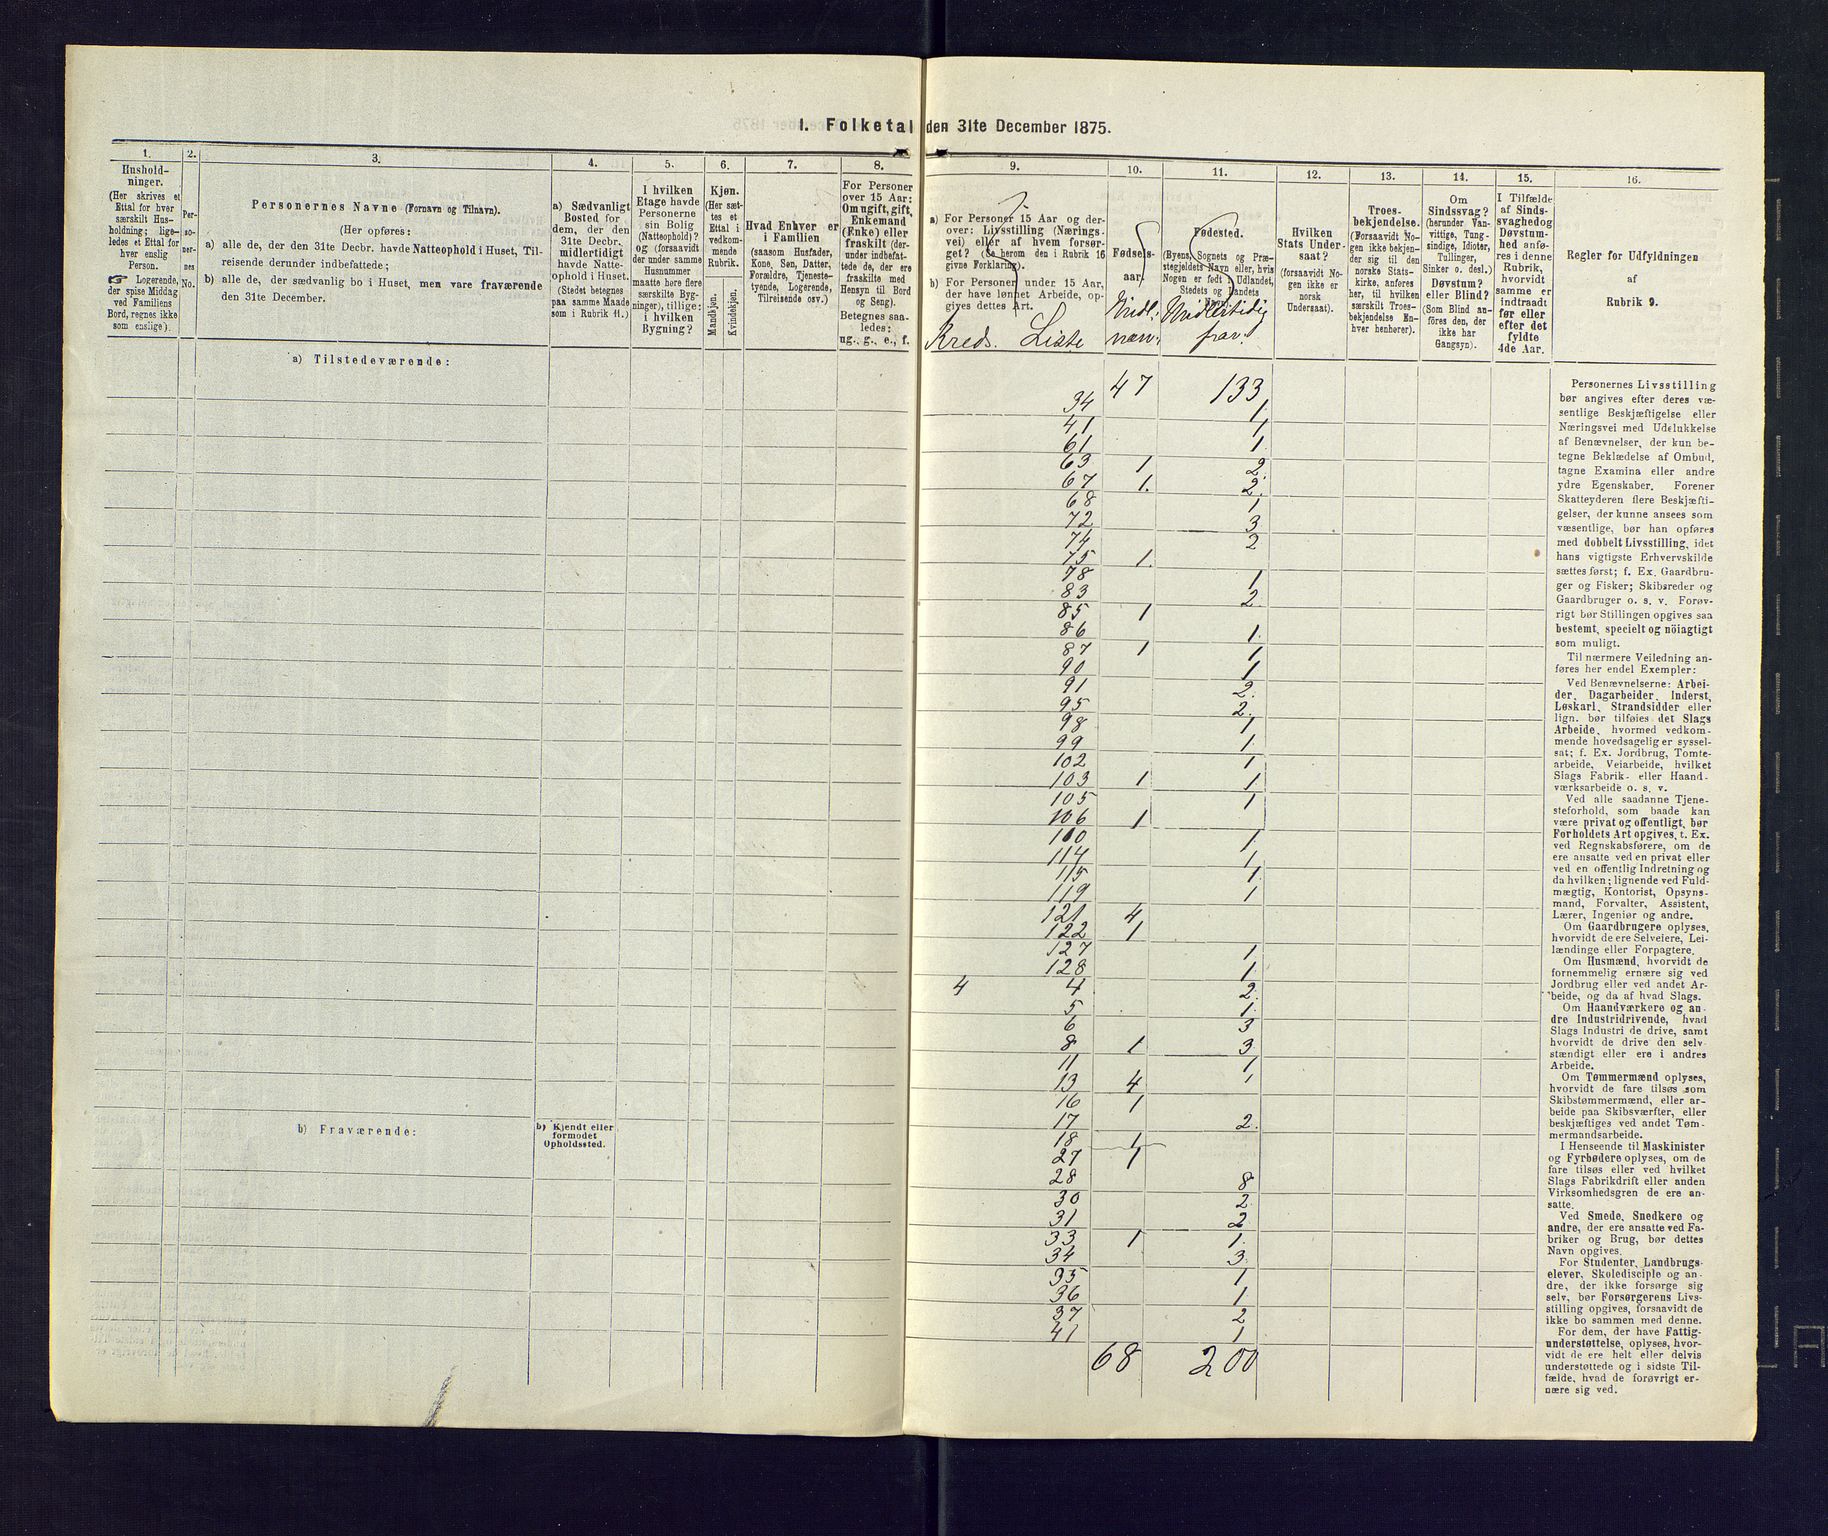 I. Folketal den 31te December 1875.
1.
Hushold-
ninger.
(Her skrives et
Ettal for hver
særskilt Hus-
holdning; lige-
ledes et Ettal for
hver enslig
Person.
☞ Logerende,
der spise Middag
ved Familiens
Bord, regnes ikke
som enslige).
2.
Per-
so-
ner-
nes
No.
3.
Personernes Navne (Fornavn og Tilnavn).
(Her opføres:
a) alle de, der den 31te Decbr. havde Natteophold i Huset, Til-
reisende derunder indbefattede;
b) alle de, der sædvanlig bo i Huset, men vare fraværende
den 31te December.
4.
a) Sædvanligt
Bosted for
dem, der den
31te Decbr.
midlertidigt
havde Natte-
ophold i Huset.
(Stedet betegnes
paa samme Maade
som i Rubrik 11.)
5.
I hvilken
Etage havde
Personerne
sin Bolig
(Natteophold)?
og (forsaavidt
der under samme
Husnummer
maatte høre flere
særskilte Byg-
ninger), tillige:
i hvilken
Bygning?
6.
Kjøn.
(Her sæt-
tes et
Ettal i
vedkom-
mende
Rubrik.
Mandkjøn.
Kvindekjøn.
7.
Hvad Enhver er
i Familien
(saasom Husfader,
Kone, Søn, Datter,
Forældre, Tjeneste-
tyende, Logerende,
Tilreisende osv.)
8.
For Personer
over 15 Aar:
Om ugift, gift,
Enkemand
(Enke) eller
fraskilt (der-
under indbefat-
tede de, der ere
fraskilte med
Hensyn til Bord
og Seng).
Betegnes saa-
ledes:
ug., g., e., f.
9.
a) For Personer 15 Aar og der-
over: Livsstilling (Nærings-
vei) eller af hvem forsør-
get? (Se herom den i Rubrik 16
givne Forklaring).
b) For Personer under 15 Aar,
der have lønnet Arbeide, op-
gives dettes Art.
Kreds. Liste
10.
Fødsels-
aar.
Midl:
nærv:
11.
Fødested.
(Byens, Sognets og Præ-
stegjeldets Navn eller, hvis
Nogen er født i Udlandet,
Stedets og Landets
Navn).
Midlertidig
frav:
12.
Hvilken
Stats Under-
saat?
(forsaavidt No-
gen ikke er
norsk
Undersaat).
13.
Troes-
bekjendelse.
(Forsaavidt No-
gen ikke bekjen-
der sig til den
norske Stats-
kirke, anføres
her, til hvilken
særskilt Troes-
bekjendelse En-
hver henhører).
14.
Om
Sindssvag?
(herunder Van-
vittige, Tung-
sindige, Idioter,
Sinker o. desl.)
Døvstum?
eller Blind?
(Som Blind an-
føres den, der
ikke har
Gangsyn).
15.
I Tilfælde
af Sinds-
svaghed og
Døvstum-
hed anfø-
res i denne
Rubrik,
hvorvidt
samme er
indtraadt
før eller
efter det
fyldte
4de Aar.
16.
Regler for Udfyldningen
af
Rubrik 9.
a) Tilstedeværende:
47 133
34 1.
41 1
61 1.
63 1 2
67 1. 2.
68 1
72 3
74 2
75 1.
78 1
83 2.
85 1
86 1.
87 1 1
90 1
91 2.
95 2.
98 1
99 1.
102 1
103 1 1
105 1
106 1
110 1.
114 1
115 1.
119 1
121 4
122 1
127 1
128 1.
4 4 2.
5 1.
6 3
8 1 3
11 1
13 4 1
16 1
17 2.
18 1
27 1
28 8
30 2
31 2
33 1 1.
34 3.
35 1
36 1.
37 2
41 1
68 200
b) Fraværende:
b) Kjendt eller
formodet
Opholdssted.
Personernes Livsstilling
bør angives efter deres væ-
sentlige Beskjæftigelse eller
Næringsvei med Udelukkelse
af Benævnelser, der kun be-
tegne Beklædelse af Ombud,
tagne Examina eller andre
ydre Egenskaber. Forener
Skatteyderen flere Beskjæfti-
gelser, der kunne ansees som
væsentlige, bør han opføres
med dobbelt Livsstilling, idet
hans vigtigste Erhvervskilde
sættes først; f. Ex. Gaardbru-
ger og Fisker; Skibsreder og
Gaardbruger o. s. v. Forøv-
rigt bør Stillingen opgives saa
bestemt, specielt og nöiagtigt
som muligt.
Til nærmere Veiledning an-
føres her endel Exempler:
Ved Benævnelserne: Arbei-
der, Dagarbeider, Inderst,
Løskarl, Strandsidder eller
lign. bør tilføies det Slags
Arbeide, hvormed vedkom-
mende hovedsagelig er syssel-
sat; f. Ex. Jordbrug, Tomte-
arbeide, Veiarbeide, hvilket
Slags Fabrik- eller Haand-
værksarbeide o. s. v.
Ved alle saadanne Tjene-
steforhold, som baade kan
være privat og offentligt, bør
Forholdets Art opgives, t. Ex.
ved Regnskabsførere, om de
ere ansatte ved en privat eller
ved en offentlig Indretning og
da hvilken; lignende ved Fuld-
mægtig, Kontorist, Opsyns-
mand, Forvalter, Assistent,
Lærer, Ingeniør og andre.
Om Gaardbrugere oplyses,
hvorvidt de ere Selveiere, Lei-
lændinge eller Forpagtere.
Om Husmænd, hvorvidt de
fornemmelig ernære sig ved
Jordbrug eller ved andet Ar-
beide, og da af hvad Slags.
Om Haandværkere og an-
dre Industridrivende, hvad
Slags Industri de drive, samt
hvorvidt de drive den selv-
stændigt eller ere i andres
Arbeide.
Om Tømmermænd oplyses,
hvorvidt de fare tilsøs som
Skibstømmermænd, eller ar-
beide paa Skibsværfter, eller
beskjæftiges ved andet Tøm-
mermandsarbeide.
I Henseende til Maskinister
og Fyrbødere oplyses, om de
fare tilsøs eller ved hvilket
Slags Fabrikdrift eller anden
Virksomhedsgren de ere an-
satte.
Ved Smede, Snedkere og
andre, der ere ansatte ved Fa-
briker og Brug, bør dettes
Navn opgives.
For Studenter, Landbrugs-
elever, Skoledisciple og an-
dre, der ikke forsørge sig
selv, bør Forsørgerens Livs-
stilling opgives, forsaavidt de
ikke bo sammen med denne.
For dem, der have Fattig-
understøttelse, oplyses, hvor-
vidt de ere helt eller delvis
understøttede og i sidste Til-
fælde, hvad de forøvrigt er-
nære sig ved.